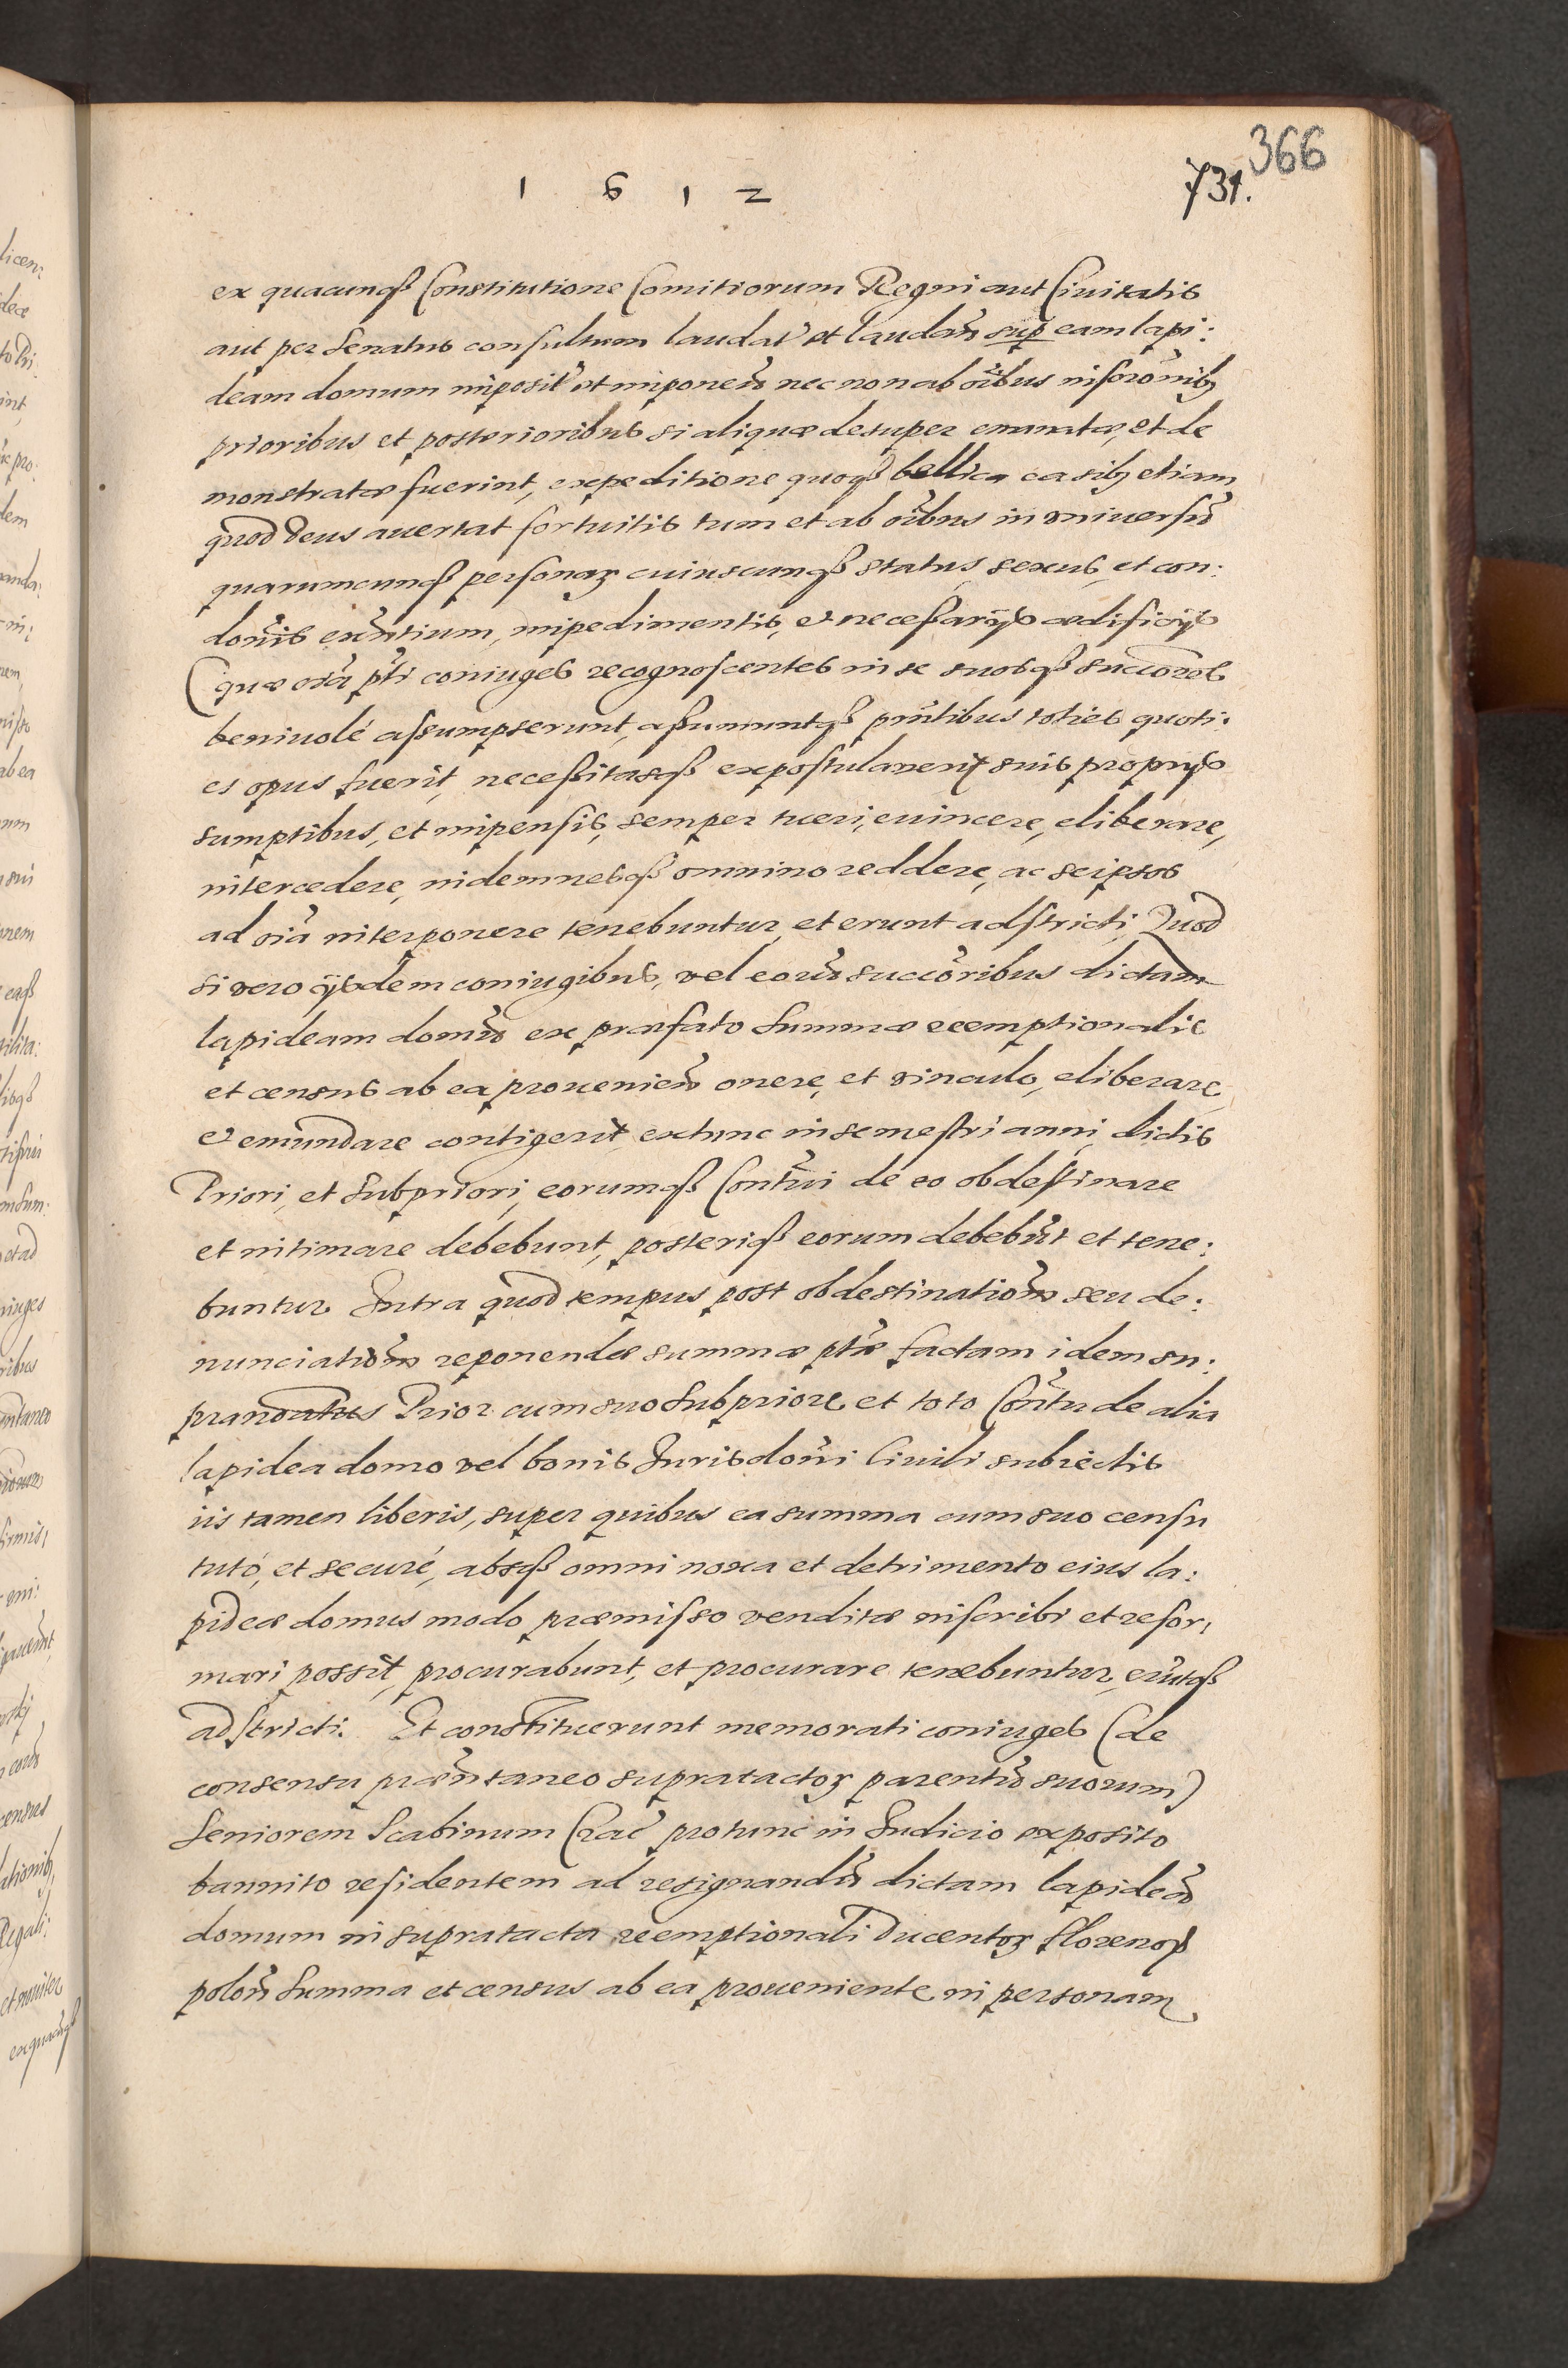 366
1 6 1 2
731.
ex quacunqȝ Constitutione Comitiorum Regni aut Ciuitatis
aut per Senatus consultum laudat̃ et laudañ sup̱ eam lapi:
deam domum imposit̃ et imponeñ nec non ab oĩbus inscrõnibȝ
prioribus et posterioribus si aliquæ desuper enunatæ, et de
monstratæ fuerint, expeditione quoqȝ bellica casibȝ etiam
quod Deus auertat fortuitis tum et ab oĩbus in vniuersũ
quarumcunqȝ personaꝝ cuiuscunqȝ status sexus, et con:
dõnis exñtium, impedimentis, et necessarÿs ædificÿs
(quæ oĩa pt̃i coniuges recognoscentes in se suosqȝ succõres
beniuolé assumpserunt, assumuntqȝ pñtibus toties quoti:
es opus fuerit, necessitasqȝ expostulauerit suis proprÿs
sumptibus, et impensis, semper tueri, euincere, eliberare,
intercedere, indemnesqȝ omnino reddere, ac seipsos
ad oĩa interponere tenebuntur, et erunt adstricti, Quod
si vero ÿsdem coniugibus, vel eorũ succõribus dictam
lapideam domũ ex præfato summæ reemptionalis
et census ab ea prouenieñ onere, et vinculo, eliberare
et emundare contigerit, extunc in semestri anni, dictis
Priori, et Subpriori, eorumqȝ Conṽtui de eo obdestinare
et intimare debebunt, posteriqȝ eorum debebũt et tene:
buntur Intra quod tempus post obdestinatiõm seu de:
nunciatiõm reponendæ summæ pt̃æ factam idem su:
pranõatus Prior cum suo Subpriore et toto Conṽtu de alia
lapidea domo vel bonis Jurisdõni Ciuili subiectis
iis tamen liberis, super quibus ea summa cum suo censu
tuto, et securé, absqȝ omni noxa et detrimento eius la:
pideæ domus modo præmisso venditæ inscribi et refor:
mari possit, procurabunt, et procurare tenebuntur, erũtqȝ
adstricti. Et constituerunt memorati coniuges (de
consensu præñtaneo supratactoꝝ parentũ suorum)
Seniorem Scabinum Crac̃ pro tunc in Iudicio exposito
bannito residentem ad resignandũ dictam lapideã
domum in supratacta reemptionali Ducentoꝝ florenoꝝ
poloñ summa et census ab ea proueniente in personam